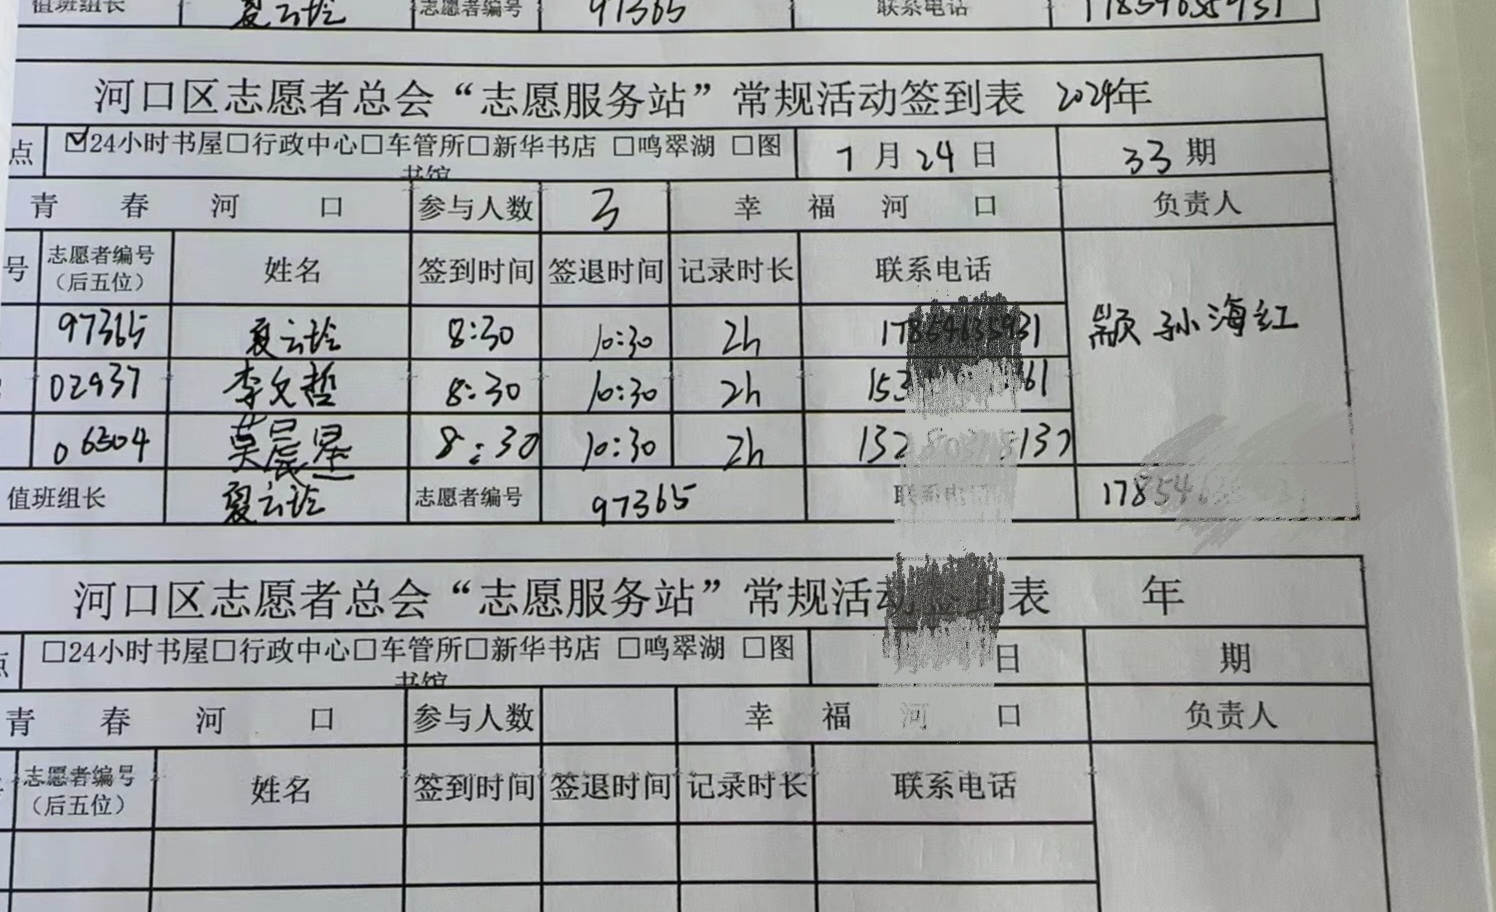 值班组长 夏云玲 志愿者编号 97365 联系电话
河口区志愿者总会“志愿服务站”常规活动签到表 2024年
点 ☑24小时书屋□行政中心□车管所□新华书店 □鸣翠湖 □图书馆 7月24日 33期
青春河口 参与人数 3 幸福河口 负责人
号 志愿者编号（后五位） 姓名 签到时间 签退时间 记录时长 联系电话
97365 夏云玲 8:30 10:30 2h 颛孙海红
02937 李文哲 8:30 10:30 2h
06504 莫晨星 8:30 10:30 2h
值班组长 夏云玲 志愿者编号 97365 联系电话
河口区志愿者总会“志愿服务站”常规活动签到表 年
点 □24小时书屋□行政中心□车管所□新华书店 □鸣翠湖 □图书馆 月 日 期
青春河口 参与人数 幸福河口 负责人
号 志愿者编号（后五位） 姓名 签到时间 签退时间 记录时长 联系电话